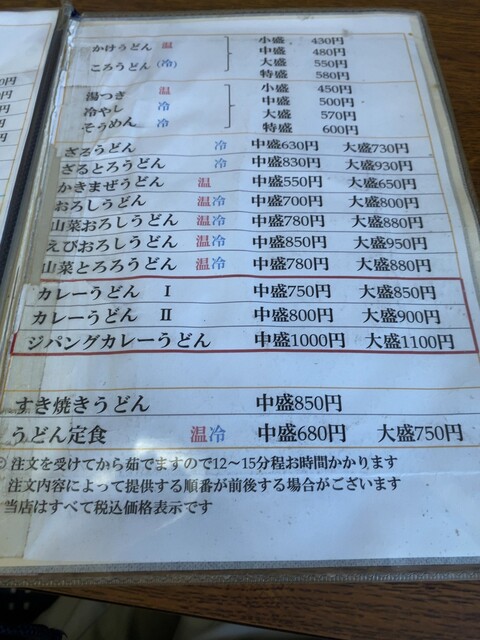 小盛 430円
かけうどん 温 中盛 480円
ころうどん (冷) 大盛 550円
特盛 580円
湯つき 温 小盛 450円
冷やし 冷 中盛 500円
そうめん 冷 大盛 570円
特盛 600円
ざるうどん 冷 中盛630円 大盛730円
ざるとろうどん 冷 中盛830円 大盛930円
かきまぜうどん 温 中盛550円 大盛650円
おろしうどん 温冷 中盛700円 大盛800円
山菜おろしうどん 温冷 中盛780円 大盛880円
えびおろしうどん 温冷 中盛850円 大盛950円
山菜とろろうどん 温冷 中盛780円 大盛880円
カレーうどん Ⅰ 中盛750円 大盛850円
カレーうどん Ⅱ 中盛800円 大盛900円
ジパングカレーうどん 中盛1000円 大盛1100円
すき焼きうどん 中盛850円
うどん定食 温冷 中盛680円 大盛750円
◎注文を受けてから茹でますので12～15分程お時間かかります
注文内容によって提供する順番が前後する場合がございます
当店はすべて税込価格表示です